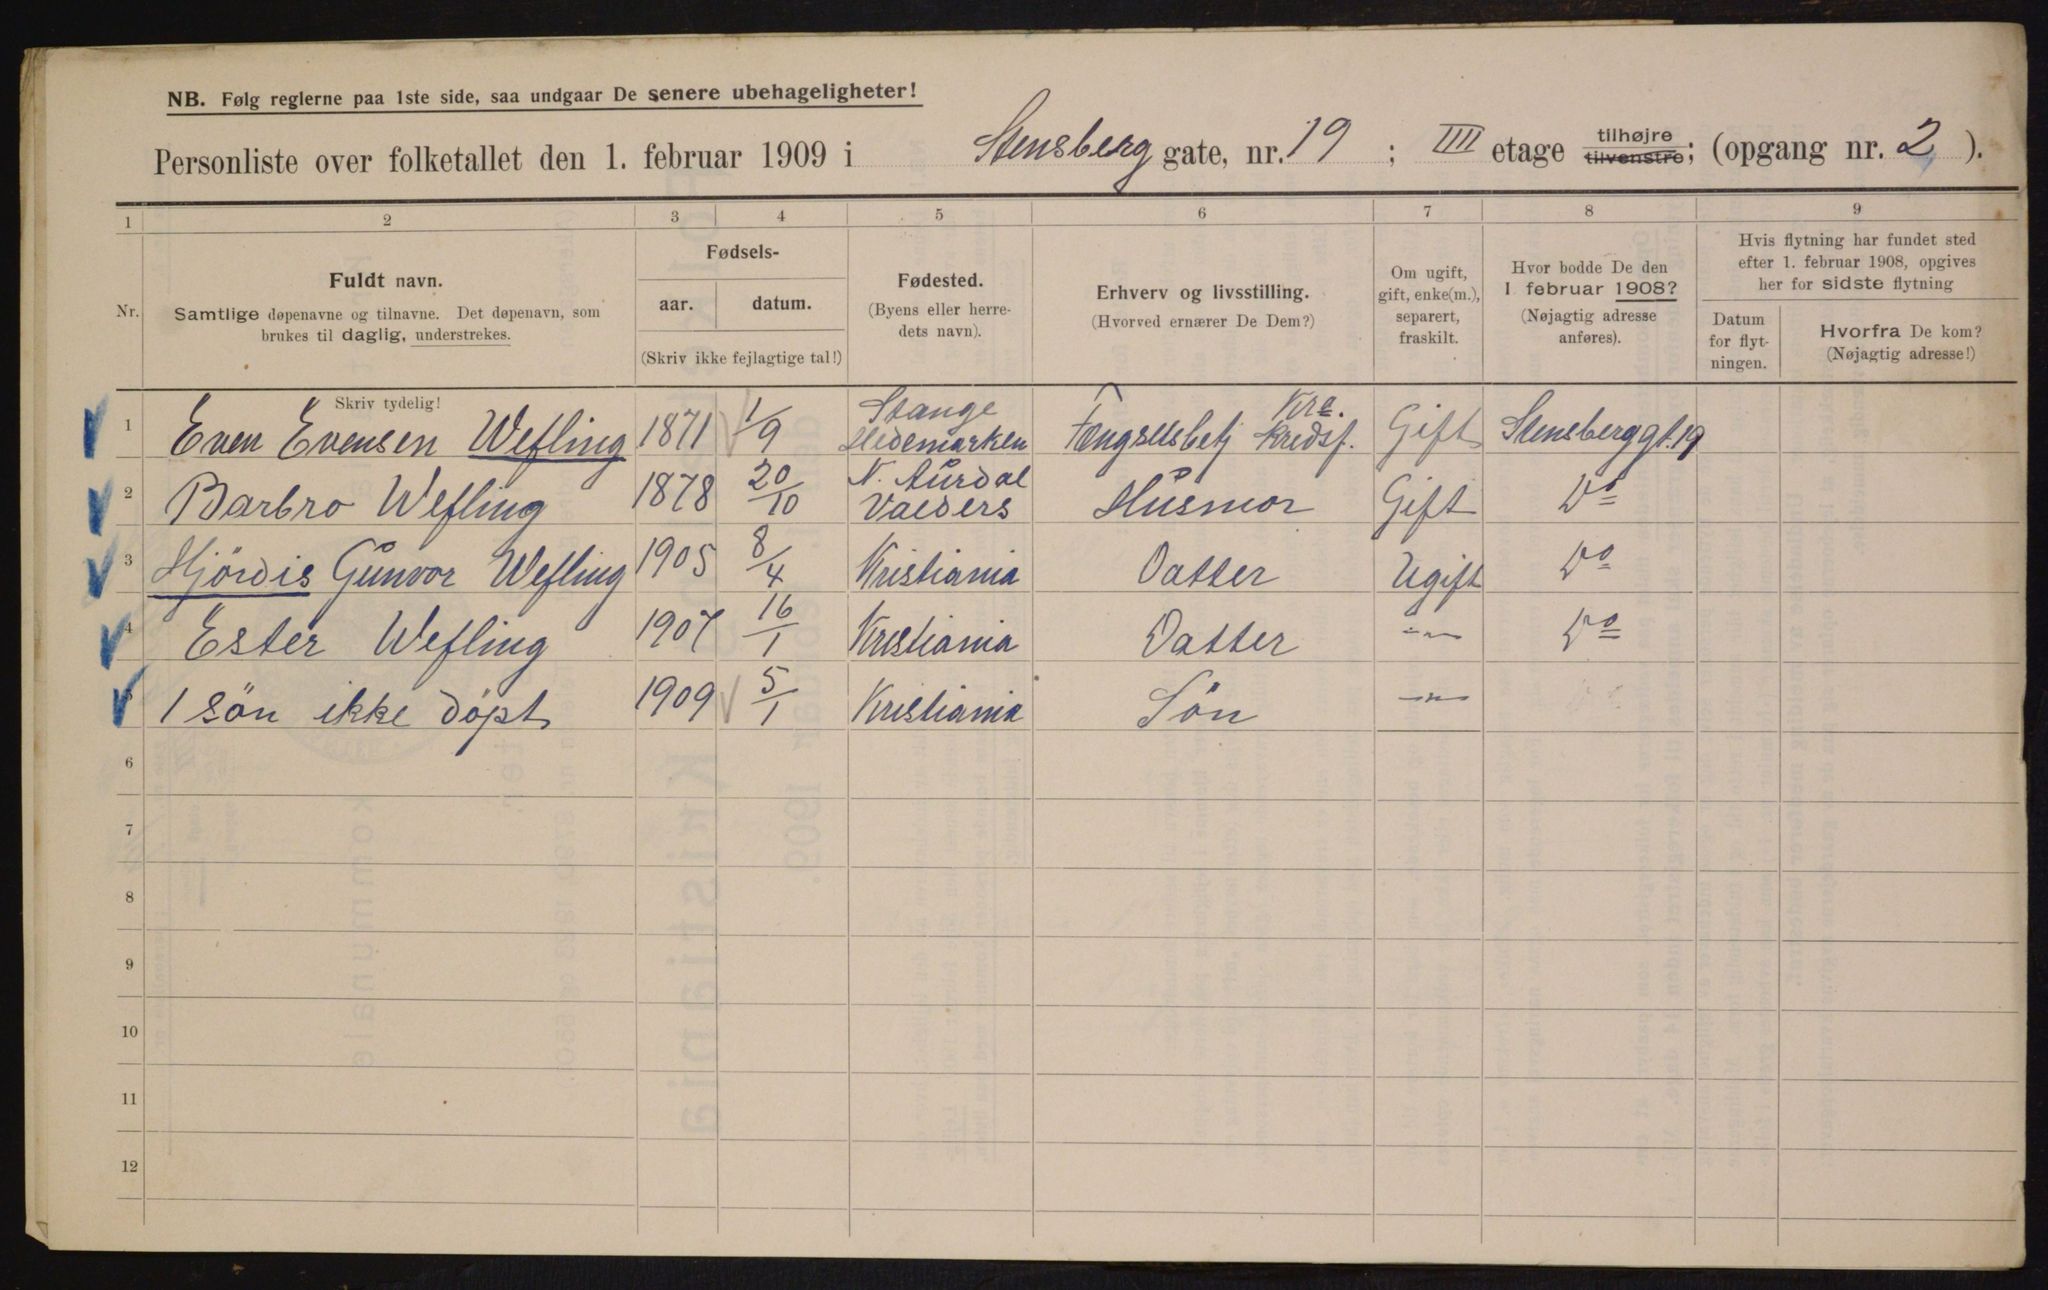 NB. Følg reglerne paa 1ste side, saa undgaar De senere ubehageligheter!
Personliste over folketallet den 1. februar 1909 i Stensberg gate, nr. 19 ; IIII etage tilhøjre tilvenstre; (opgang nr. 2 ).
1 2 3 4 5 6 7 8 9
Nr.
Fuldt navn.
Samtlige døpenavne og tilnavne. Det døpenavn, som
brukes til daglig, understrekes.
Fødsels-
aar. datum.
(Skriv ikke fejlagtige tal!)
Fødested.
(Byens eller herre-
dets navn).
Erhverv og livsstilling.
(Hvorved ernærer De Dem?)
Om ugift,
gift, enke(m.),
separert,
fraskilt.
Hvor bodde De den
1 februar 1908?
(Nøjagtig adresse
anføres).
Hvis flytning har fundet sted
efter 1. februar 1908, opgives
her for sidste flytning
Datum
for flyt-
ningen.
Hvorfra De kom?
(Nøjagtig adresse!)
Skriv tydelig!
1 Even Evensen Wefling 1871 1/9 Stange Hedemarken Fængselsbetj Kra. Kredsf. Gift Stensberggt. 19
2 Barbro Wefling 1878 20/10 N. Aurdal Valders Husmor Gift Do
3 Hjördis Gunvor Wefling 1905 8/4 Kristiania Datter Ugift Do
4 Ester Wefling 1907 16/1 Kristiania Datter —"— Do
5 1 sön ikke döpt 1909 5/1 Kristiania Sön —"—
6
7
8
9
10
11
12